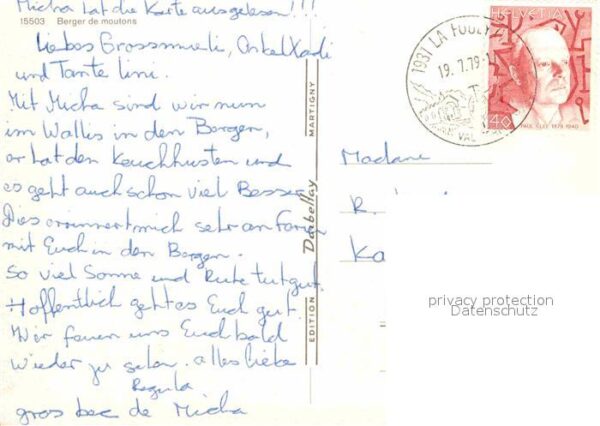 Micha hat die Karte ausgelesen!!!
15503 Berger de moutons
Liebes Grossmueti, Onkel Xadi
und Tante Lini.
Mit Micha sind wir nun
im Wallis in den Bergen,
er hat den Keuchhusten und
es geht auch schon viel Besser
Dies erinnert mich sehr an Ferien
mit Euch in den Bergen.
So viel Sonne und Ruhe tut gut.
Hoffentlich geht es Euch gut.
Wir freuen uns Euch bald
wieder zu sehen. alles liebe
Regula
gros bec de Micha
EDITION Darbellay MARTIGNY
1931 LA FOULY
19.7.79
HELVETIA
40
PAUL KLEE 1879-1940
Madame
R.
Ka
privacy protection
Datenschutz